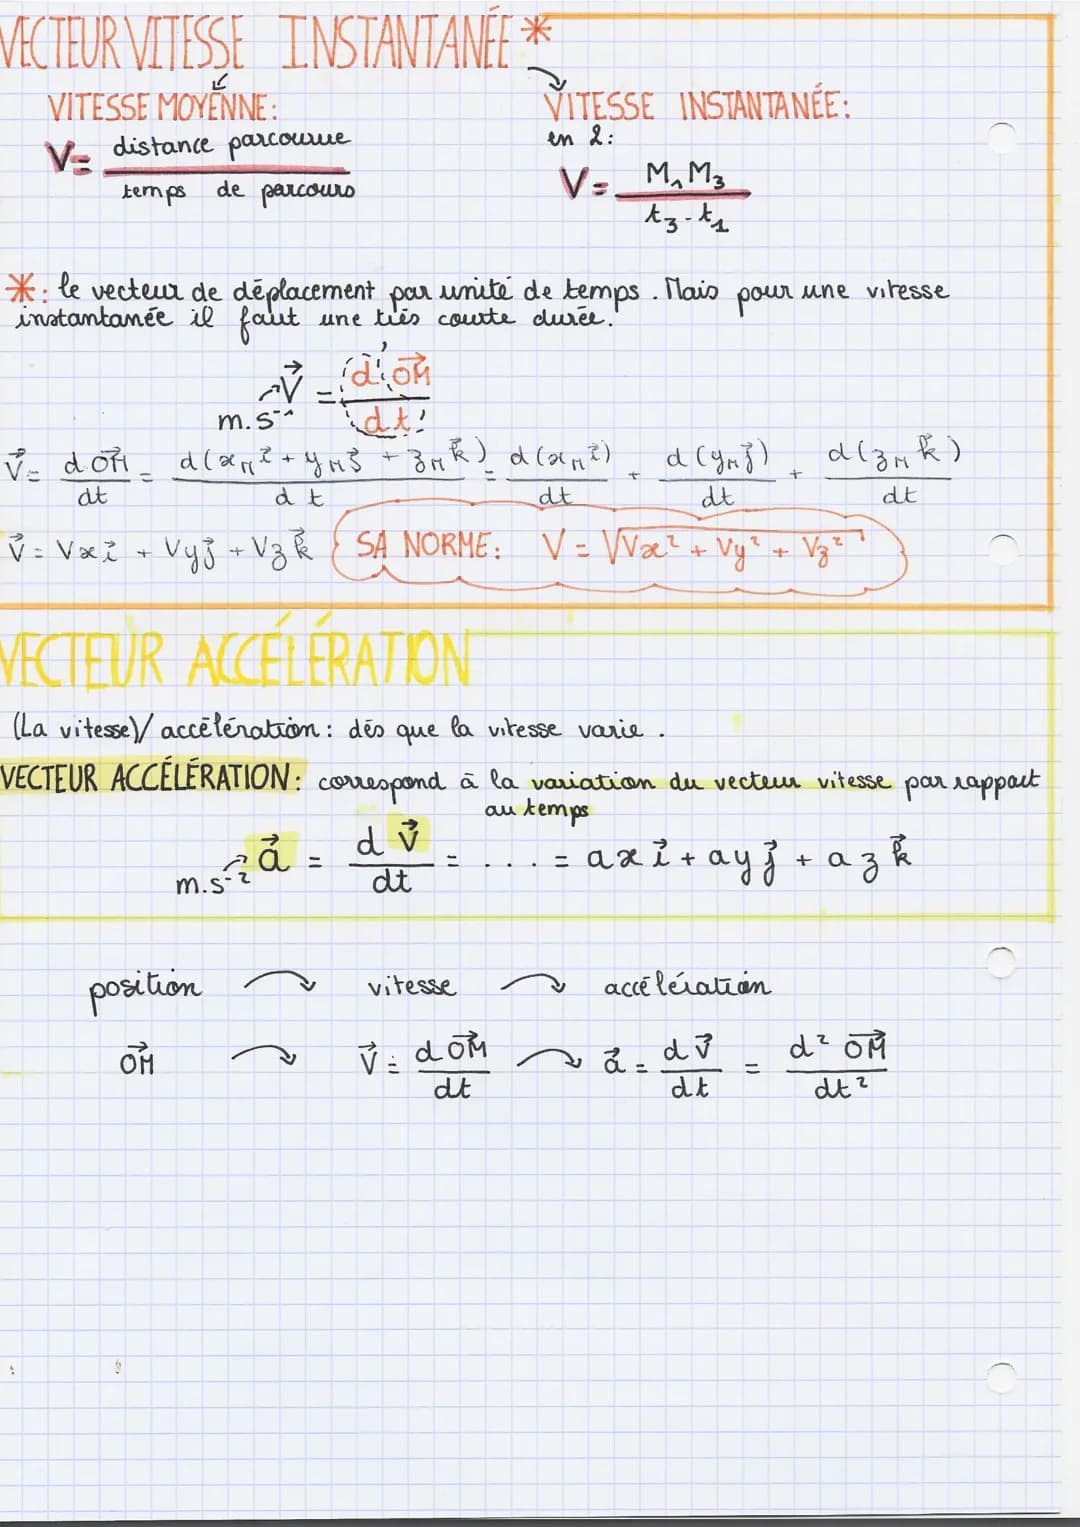 VECTEUR VITESSE INSTANTANÉE *
VITESSE MOYENNE:
V = distance parcourue / temps de parcours
VITESSE INSTANTANÉE:
en 2:
V = M₁M₃ / t₃ - t₁
*: le vecteur de déplacement par unité de temps. Mais pour une vitesse
instantanée il faut une très courte durée.
V⃗ = d OM⃗ / dt
m.s⁻¹
V⃗ = d OM⃗ / dt = d(x_M i⃗ + y_M j⃗ + z_M k⃗) / dt = d(x_M i⃗) / dt + d(y_M j⃗) / dt + d(z_M k⃗) / dt
V⃗ = Vx i⃗ + Vy j⃗ + Vz k⃗
SA NORME: V = √Vx² + Vy² + Vz²
VECTEUR ACCÉLÉRATION
(La vitesse)/ accélération : dés que la vitesse varie.
VECTEUR ACCÉLÉRATION: correspond à la variation du vecteur vitesse par rapport
au temps
a⃗ = d V⃗ / dt = .... = ax i⃗ + ay j⃗ + az k⃗
m.s⁻²
position ↷ vitesse ↷ accélération
OM⃗ ↷ V⃗ = d OM⃗ / dt ↷ a⃗ = d V⃗ / dt = d² OM⃗ / dt²